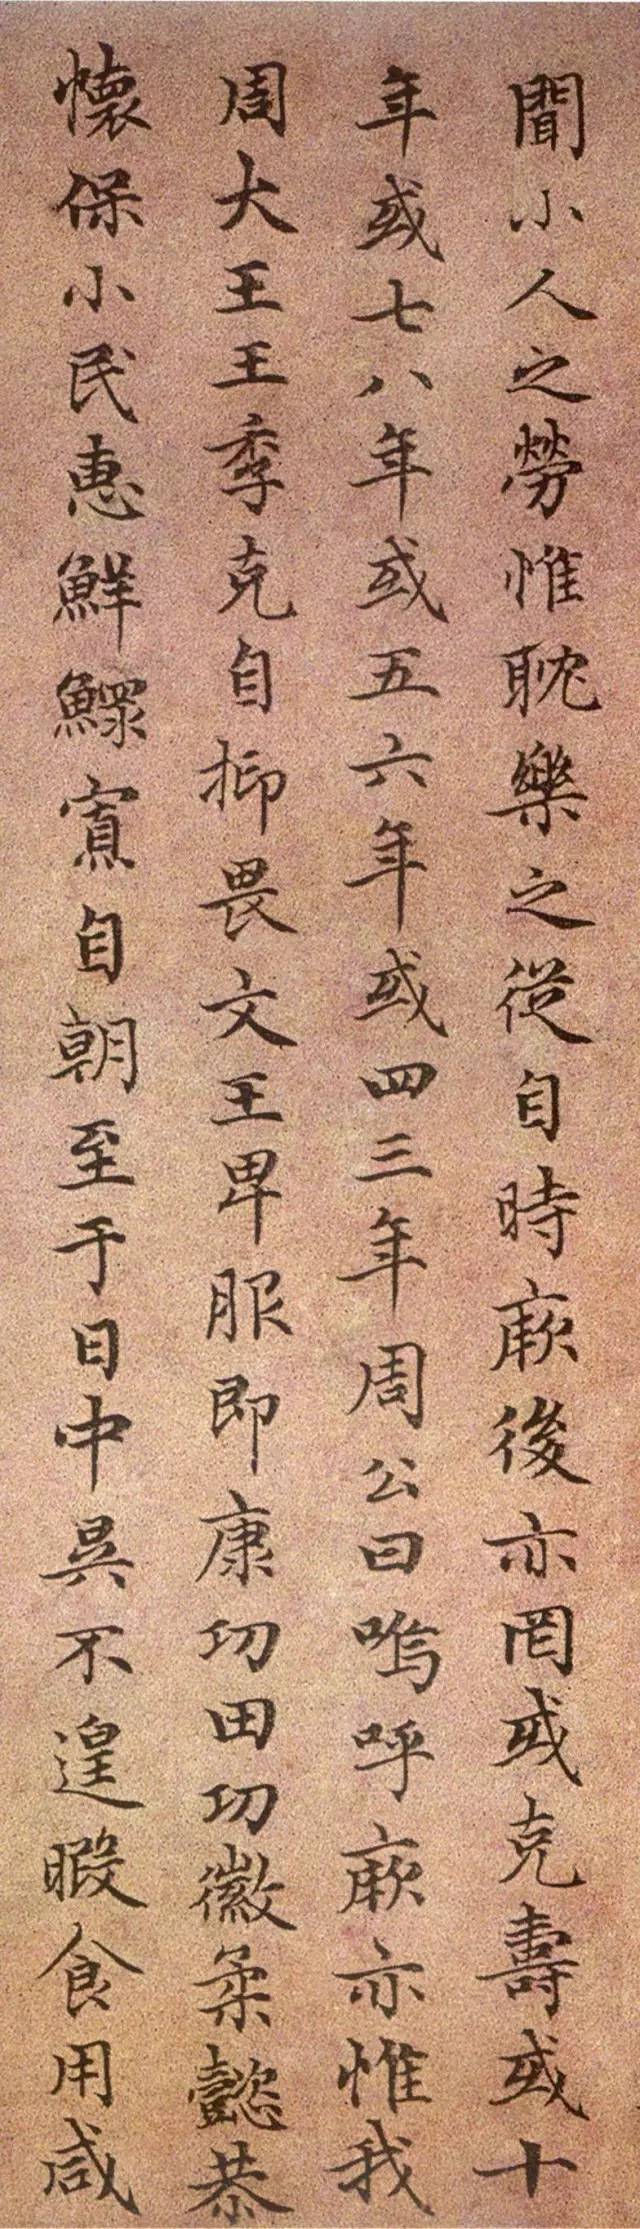 聞小人之勞惟耽樂之從自時厥後亦罔或克壽或十
年或七八年或五六年或四三年周公曰嗚呼厥亦惟我
周大王王季克自抑畏文王卑服即康功田功徽柔懿恭
懷保小民惠鮮鰥寡自朝至于日中昃不遑暇食用咸